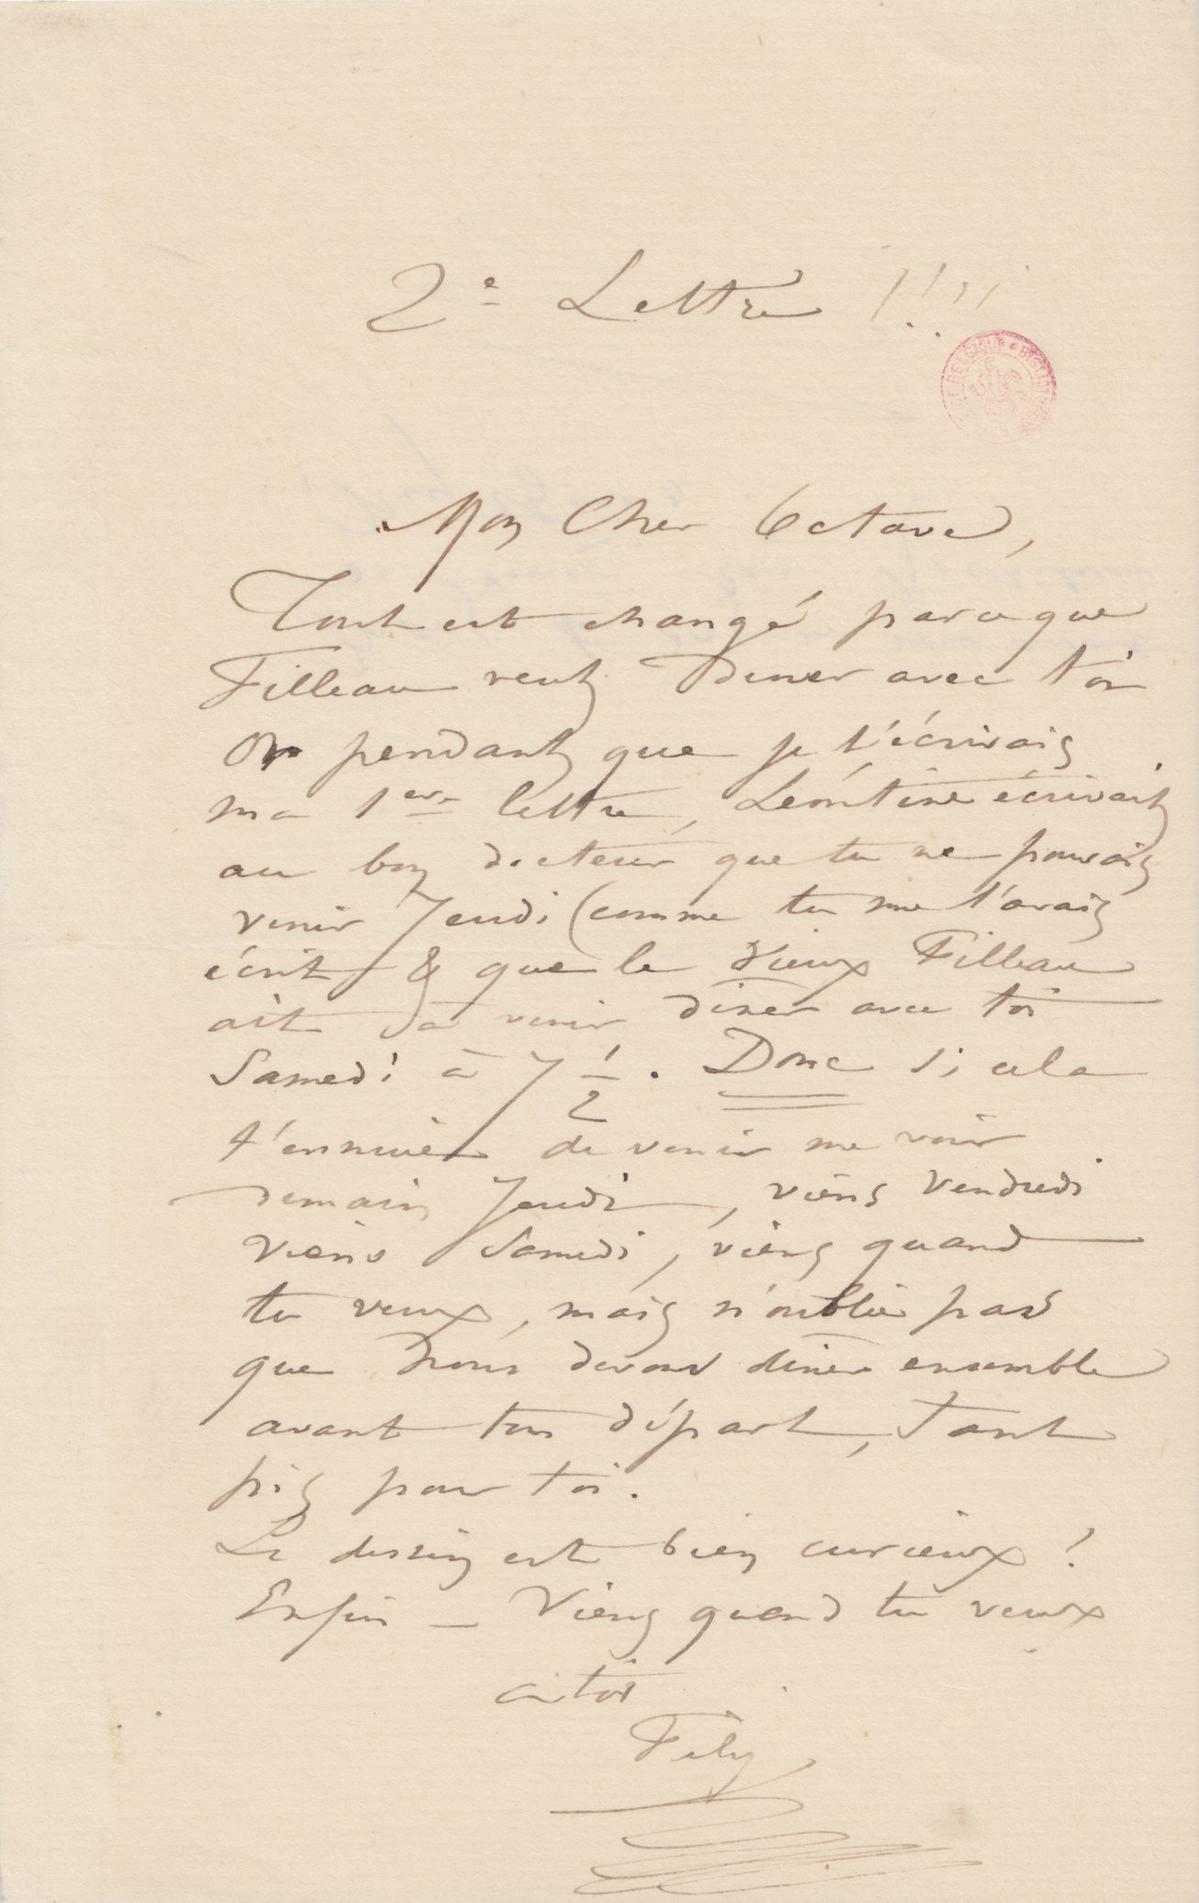 2e Lettre !!!!
DE BELGIQUE
Mon Cher Octave,
Tout est changé parceque
Filleau veut Diner avec toi
Or pendant que je t'écrivais
ma 1ere lettre, Léontine écrivait
au bon docteur que tu ne pouvais
venir Jeudi (comme tu me l'avais
écrit & que le Vieux Filleau
ait à venir diner avec toi
Samedi à 7 1/2. Donc si cela
t'ennuie de venir me voir
demain Jeudi, viens Vendredi
Viens Samedi, viens quand
tu veux, mais n'oublie pas
que Nous devons diner ensemble
avant ton départ, Tant
pis pour toi.
Le dessin est bien curieux !
Enfin — Viens quand tu veux
à toi
Fély